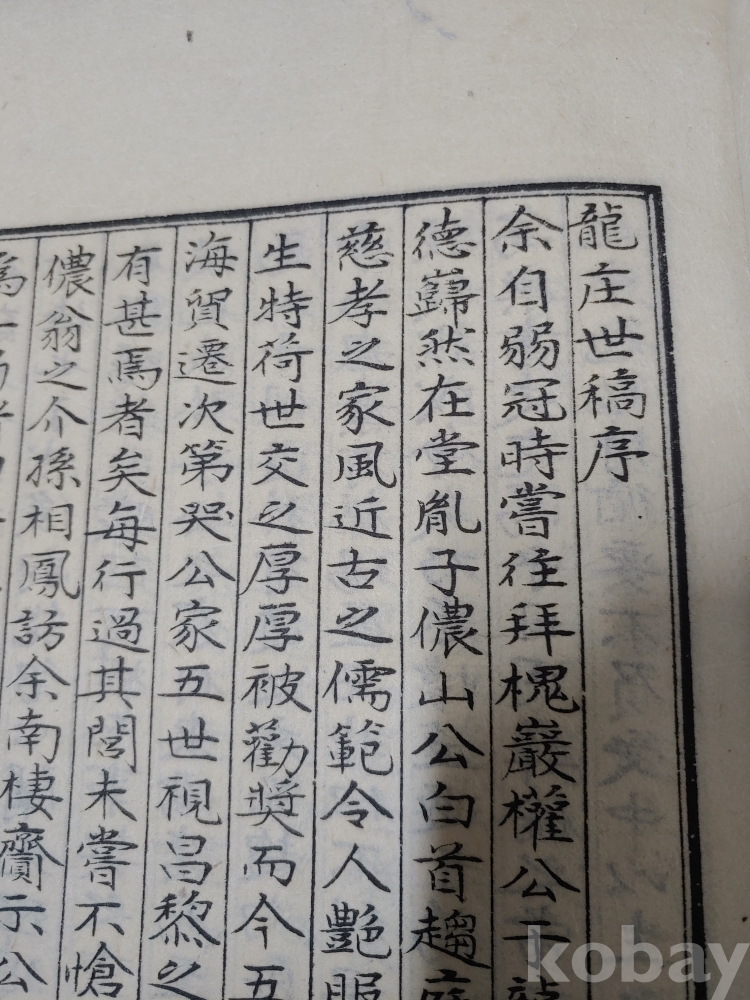 龍庄世稿序
余自弱冠時嘗往拜槐巖權公于龍
德巋然在堂胤子儂山公白首趨庭
慈孝之家風近古之儒範令人艶服
生特荷世交之厚厚被勸獎而今五
海貿遷次第哭公家五世視昌黎之
有甚焉者矣每行過其閭未嘗不愴
儂翁之介孫相鳳訪余南棲齎示公
kobay